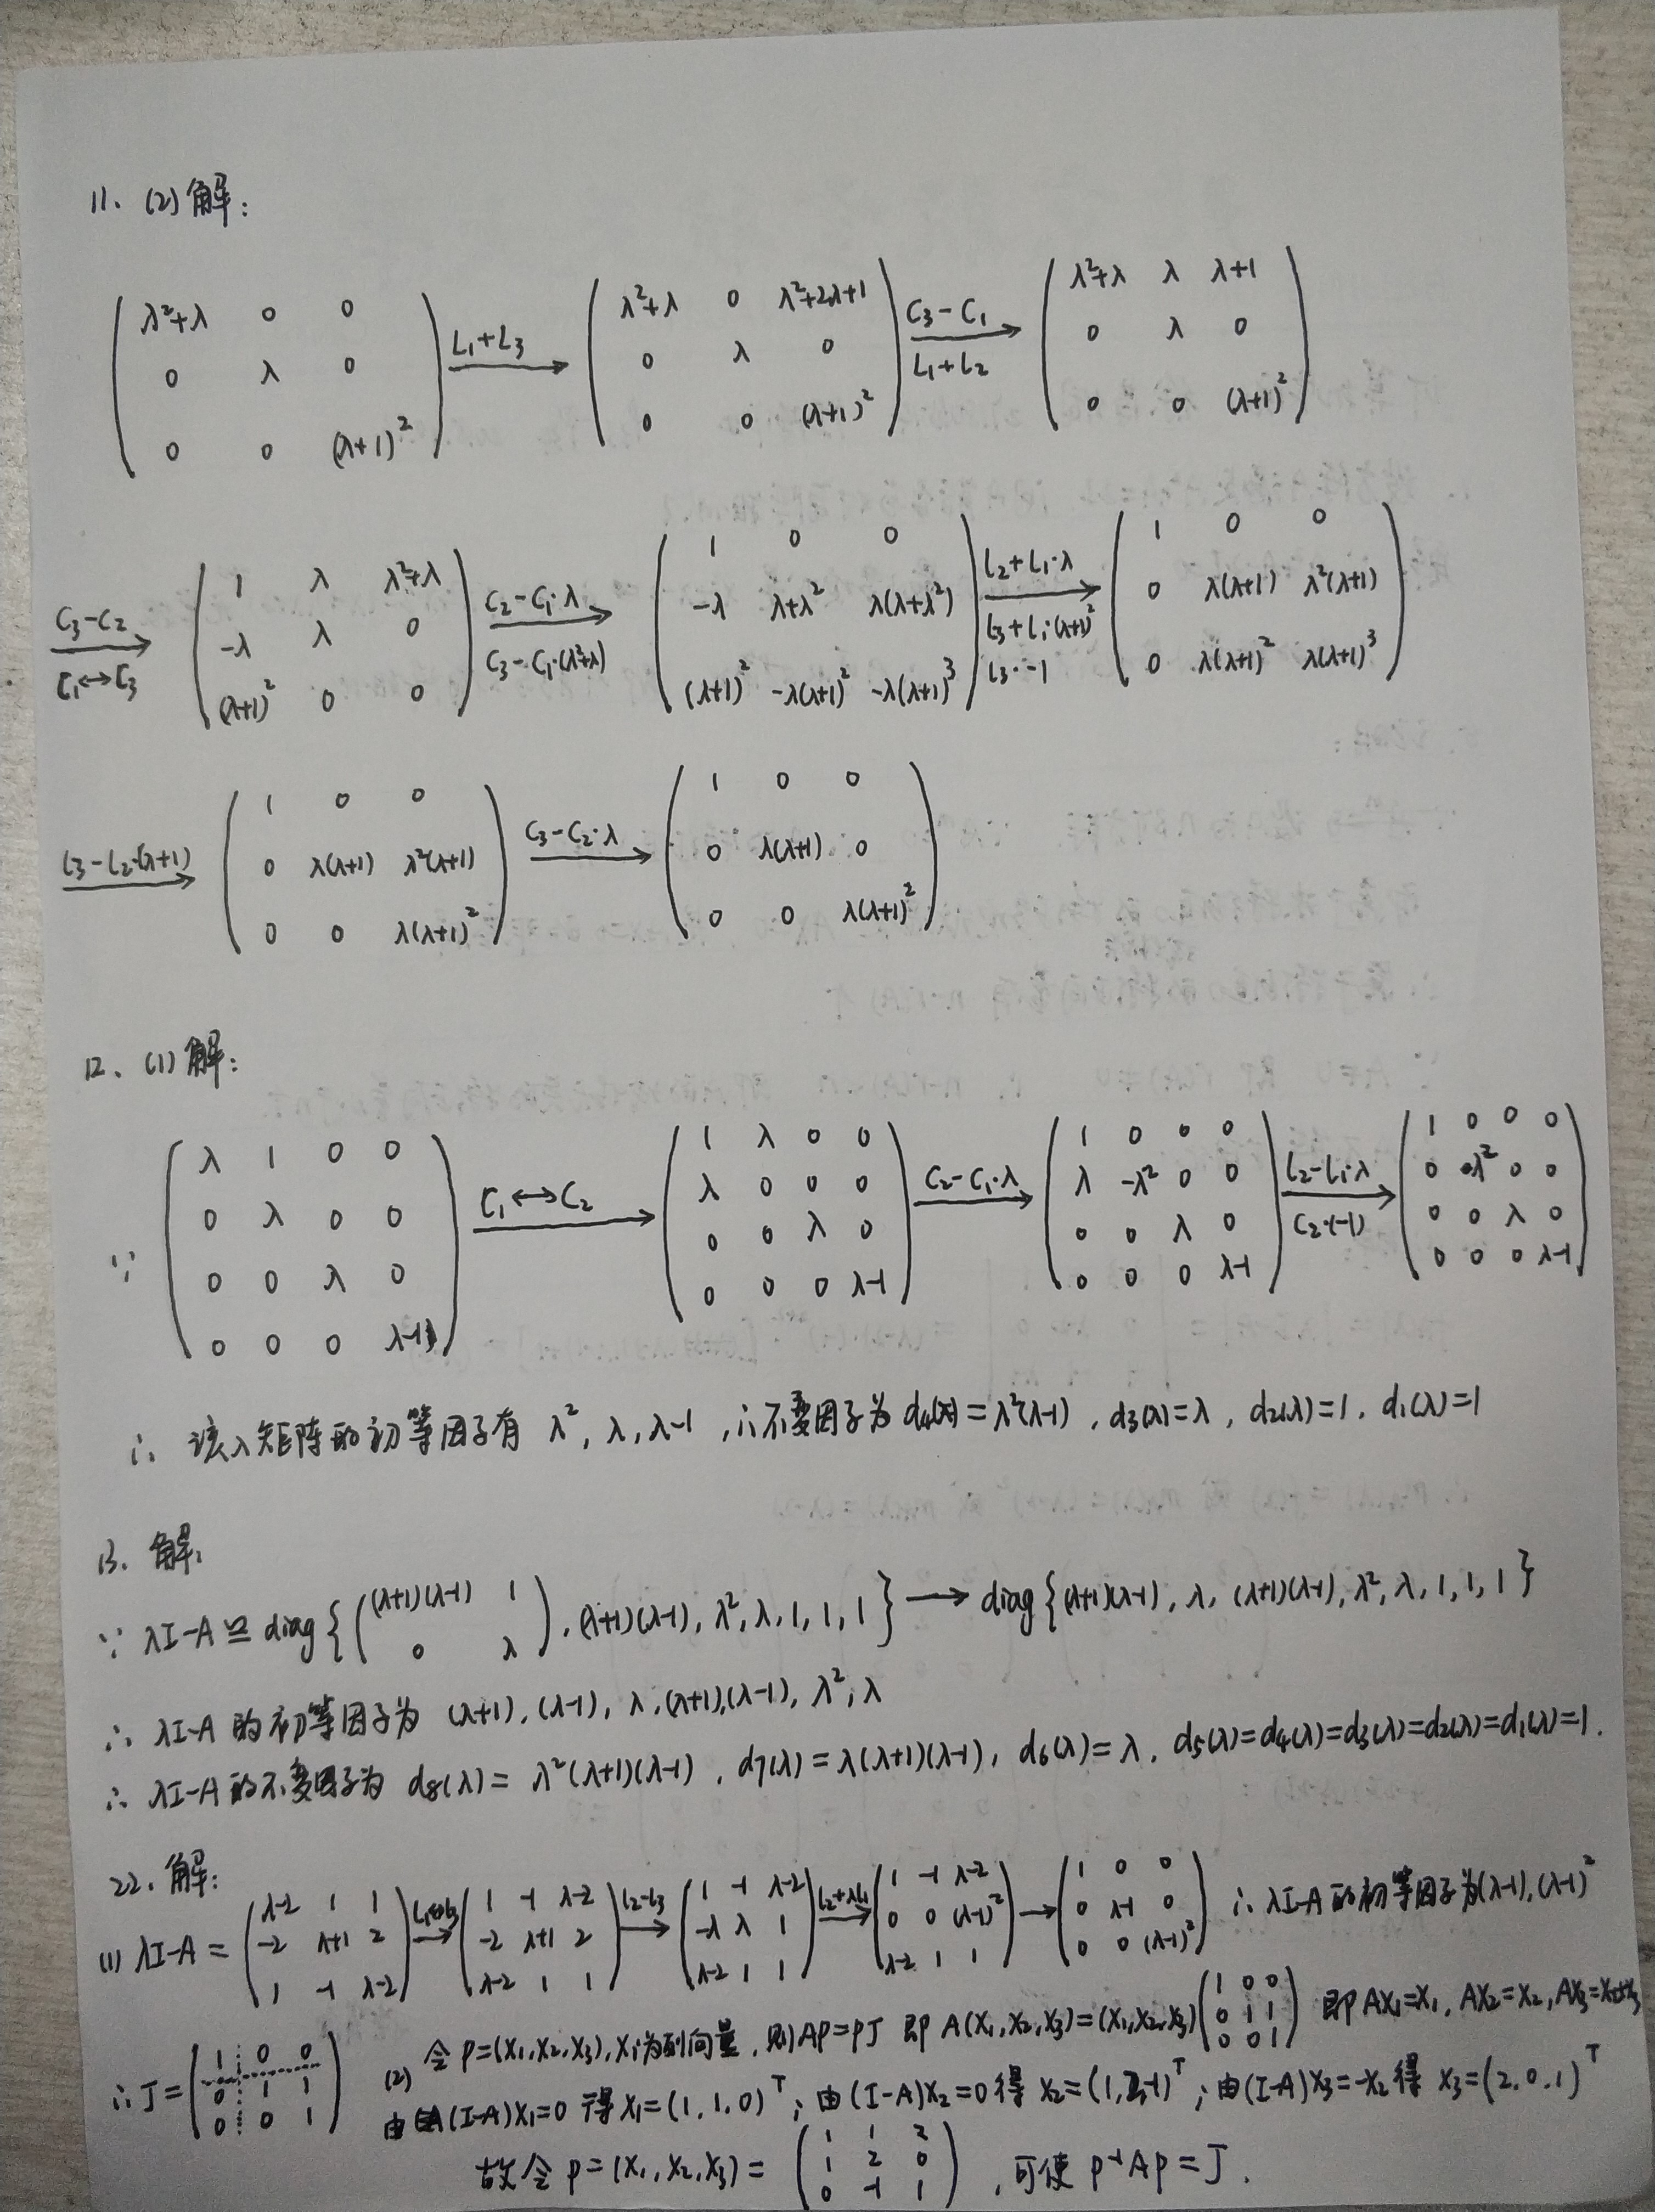 11、(2)解：
( λ²+λ 0 0 ; 0 λ 0 ; 0 0 (λ+1)² ) —L₁+L₃→ ( λ²+λ 0 λ²+2λ+1 ; 0 λ 0 ; 0 0 (λ+1)² ) —C₃-C₁ / L₁+L₂→ ( λ²+λ λ λ+1 ; 0 λ 0 ; 0 0 (λ+1)² )
—C₃-C₂ / C₁↔C₃→ ( 1 λ λ²+λ ; -λ λ 0 ; (λ+1)² 0 0 ) —C₂-C₁·λ / C₃-C₁·(λ²+λ)→ ( 1 0 0 ; -λ λ+λ² λ(λ+λ²) ; (λ+1)² -λ(λ+1)² -λ(λ+1)³ ) —L₂+L₁·λ / L₃+L₁·(λ+1)² / L₃·-1→ ( 1 0 0 ; 0 λ(λ+1) λ²(λ+1) ; 0 λ(λ+1)² λ(λ+1)³ )
—L₃-L₂·(λ+1)→ ( 1 0 0 ; 0 λ(λ+1) λ²(λ+1) ; 0 0 λ(λ+1)² ) —C₃-C₂·λ→ ( 1 0 0 ; 0 λ(λ+1) 0 ; 0 0 λ(λ+1)² )
12、(1)解：
∵ ( λ 1 0 0 ; 0 λ 0 0 ; 0 0 λ 0 ; 0 0 0 λ-1 ) —C₁↔C₂→ ( 1 λ 0 0 ; λ 0 0 0 ; 0 0 λ 0 ; 0 0 0 λ-1 ) —C₂-C₁·λ→ ( 1 0 0 0 ; λ -λ² 0 0 ; 0 0 λ 0 ; 0 0 0 λ-1 ) —L₂-L₁·λ / C₂·(-1)→ ( 1 0 0 0 ; 0 λ² 0 0 ; 0 0 λ 0 ; 0 0 0 λ-1 )
∴ 该λ矩阵的初等因子有 λ², λ, λ-1 ,∴不变因子为 d₄(λ)=λ²(λ-1) , d₃(λ)=λ , d₂(λ)=1, d₁(λ)=1
13、解：
∵ λI-A ≌ diag{ ( (λ+1)(λ-1) 1 ; 0 λ ), (λ+1)(λ-1), λ², λ, 1, 1, 1 } → diag{ (λ+1)(λ-1), λ, (λ+1)(λ-1), λ², λ, 1, 1, 1 }
∴ λI-A 的初等因子为 (λ+1), (λ-1), λ, (λ+1), (λ-1), λ², λ
∴ λI-A的不变因子为 d₈(λ)= λ²(λ+1)(λ-1) , d₇(λ)=λ(λ+1)(λ-1), d₆(λ)=λ, d₅(λ)=d₄(λ)=d₃(λ)=d₂(λ)=d₁(λ)=1.
22、解：
(1) λI-A = ( λ-2 1 1 ; -2 λ+1 2 ; 1 -1 λ-2 ) —L₁↔L₃→ ( 1 -1 λ-2 ; -2 λ+1 2 ; λ-2 1 1 ) —L₂-L₃→ ( 1 -1 λ-2 ; -λ λ 1 ; λ-2 1 1 ) —L₂+λL₁→ ( 1 -1 λ-2 ; 0 0 (λ-1)² ; λ-2 1 1 ) → ( 1 0 0 ; 0 λ-1 0 ; 0 0 (λ-1)² ) ∴ λI-A的初等因子为(λ-1), (λ-1)²
∴ J= ( 1 0 0 ; 0 1 1 ; 0 0 1 )
(2) 令 P=(X₁,X₂,X₃), Xᵢ为列向量, 则AP=PJ 即 A(X₁,X₂,X₃)=(X₁,X₂,X₃)( 1 0 0 ; 0 1 1 ; 0 0 1 ) 即AX₁=X₁, AX₂=X₂, AX₃=X₂+X₃
由(I-A)X₁=0 得X₁=(1,1,0)ᵀ; 由(I-A)X₂=0得 X₂=(1,2,-1)ᵀ; 由(I-A)X₃=-X₂得 X₃=(2,0,1)ᵀ
故令 P=(X₁,X₂,X₃)= ( 1 1 2 ; 1 2 0 ; 0 -1 1 ) , 可使 P⁻¹AP=J.